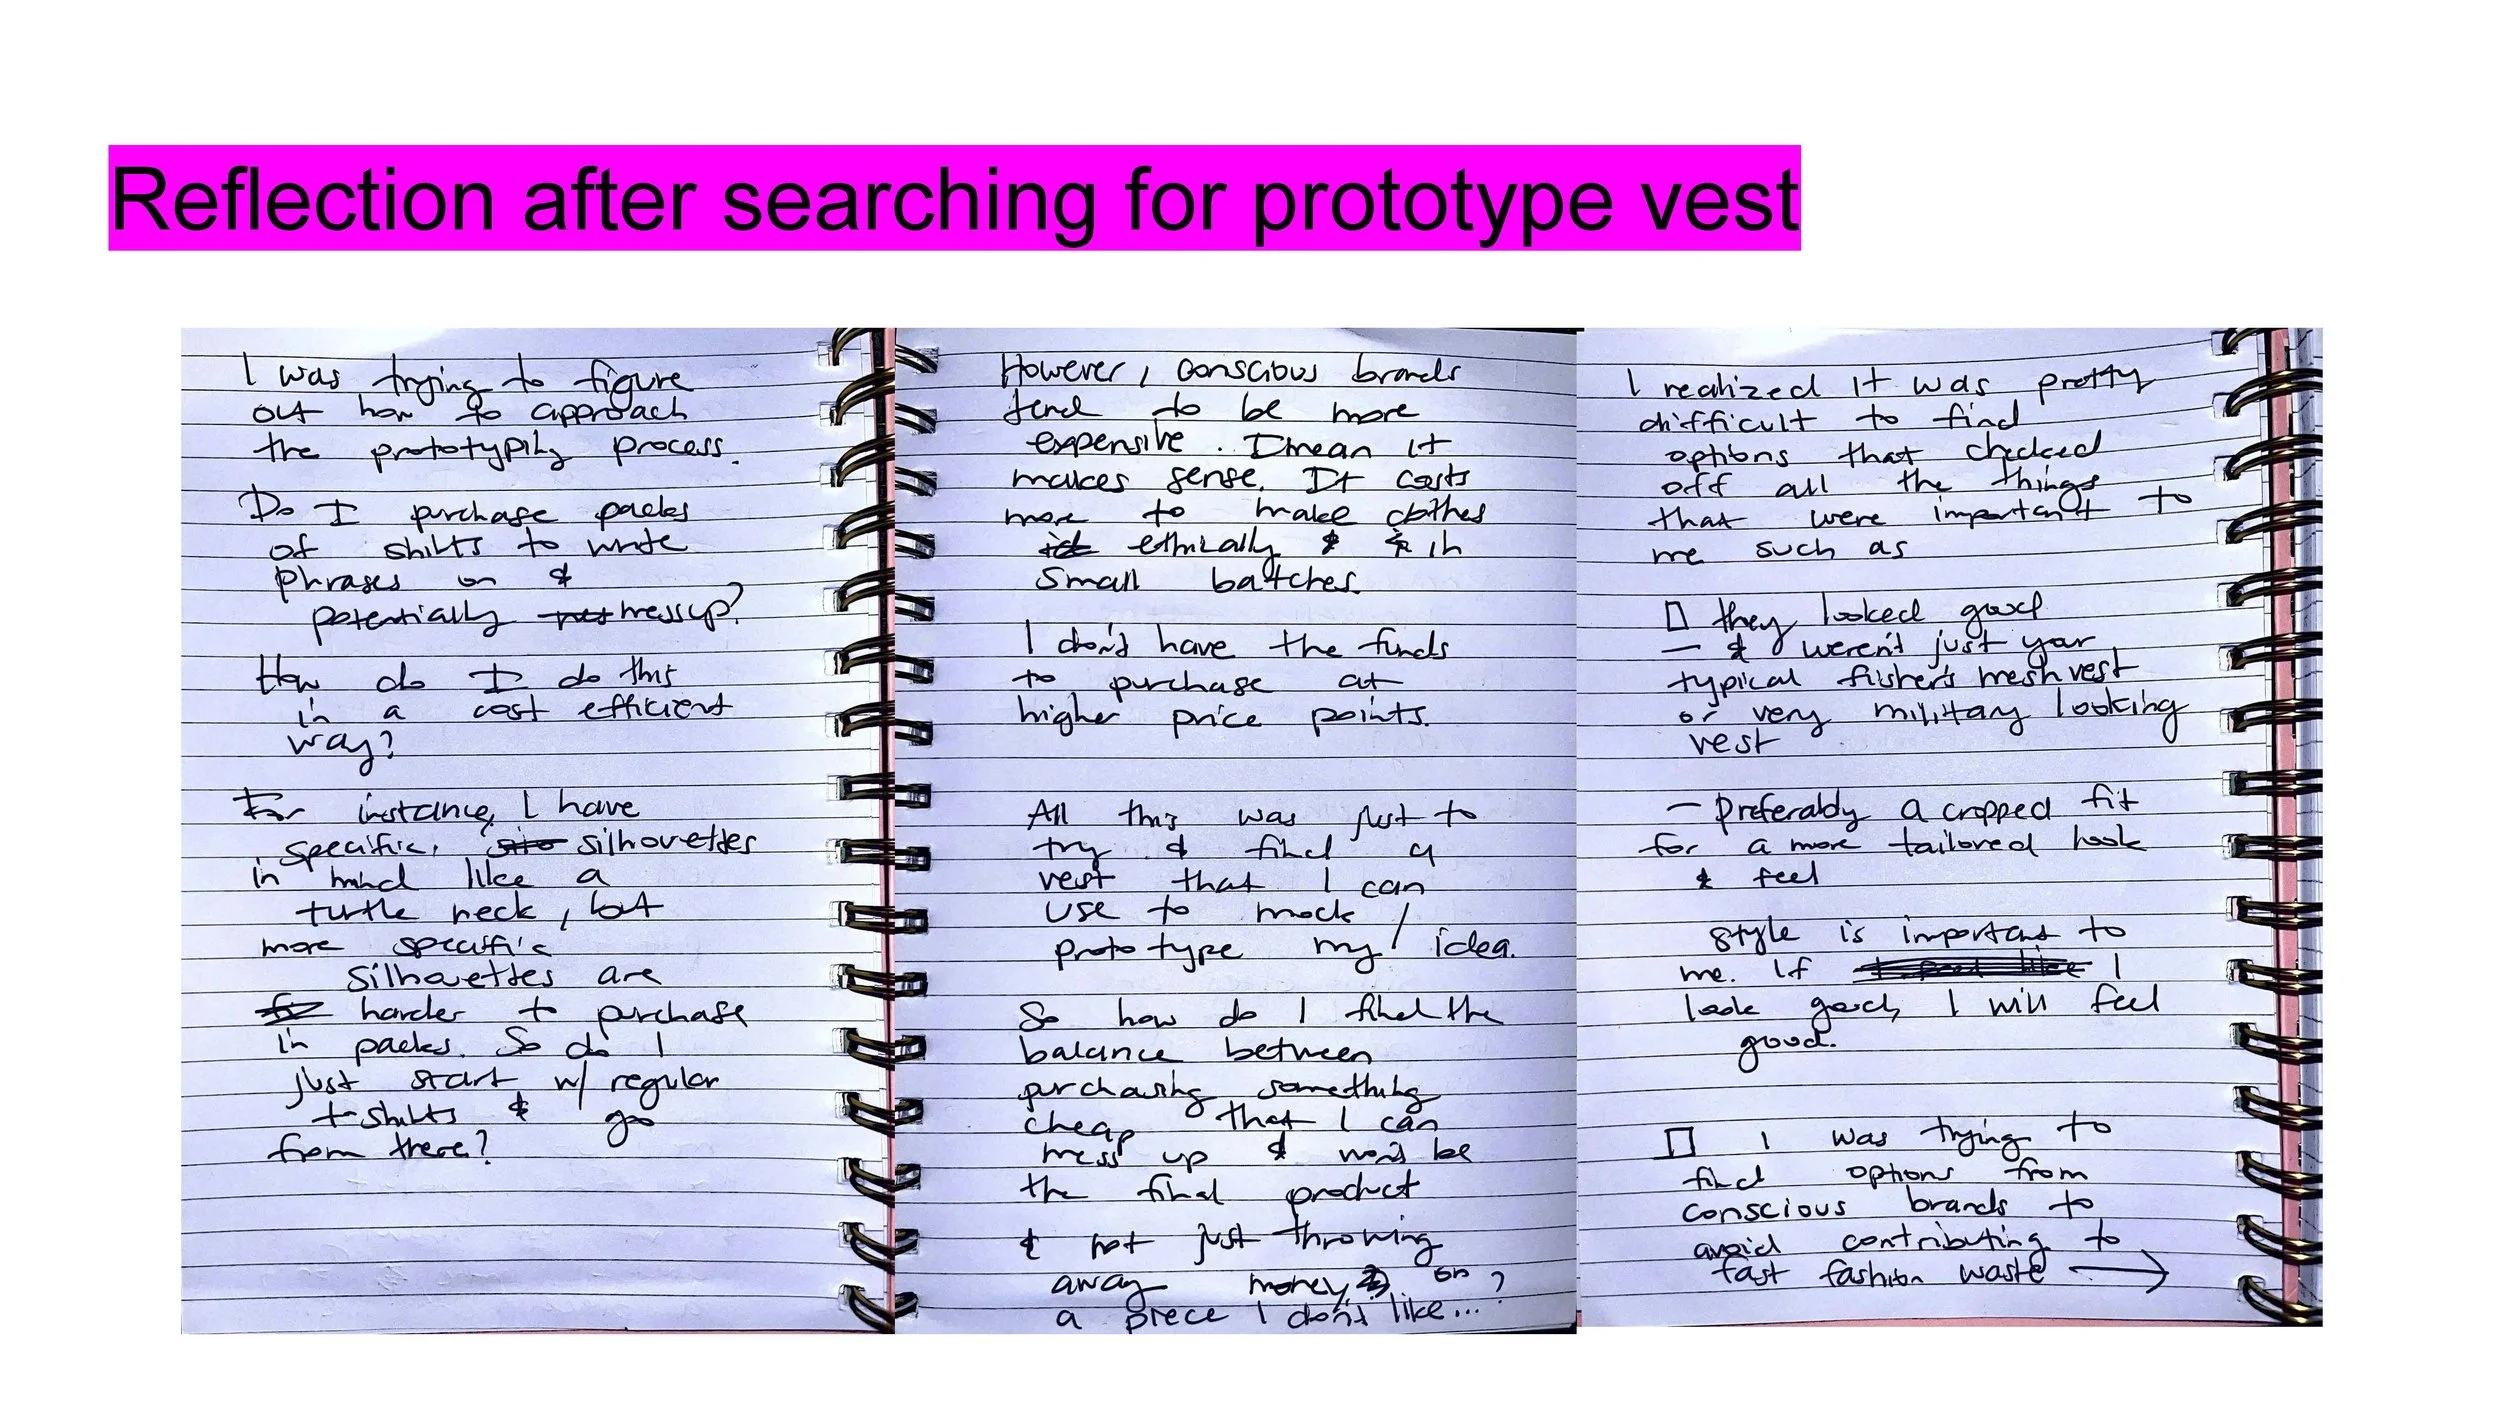 Reflection after searching for prototype vest
I was trying to figure
out how to approach
the prototyping process.
Do I purchase packs
of shirts to write
phrases on &
potentially mess up?
How do I do this
in a cost efficient
way?
For instance, I have
specific, silhouettes
in mind like a
turtle neck, but
more specific
silhouettes are
harder to purchase
in packs. So do I
just start w/ regular
t-shirts & go
from there?
However, conscious brands
tend to be more
expensive. I mean it
makes sense. It costs
more to make clothes
ethically & in
small batches.
I don't have the funds
to purchase at
higher price points.
All this was just to
try & find a
vest that I can
use to mock /
prototype my idea.
So how do I find the
balance between
purchasing something
cheap that I can
mess up & won't be
the final product
& not just throwing
away money on ?
a piece I don't like...
I realized it was pretty
difficult to find
options that checked
off all the things
that were important to
me such as
they looked good
— & weren't just your
typical fisher's mesh vest
or very military looking
vest
— preferably a cropped fit
for a more tailored look
& feel
style is important to
me. If I
look good, I will feel
good.
I was trying to
find options from
conscious brands to
avoid contributing to
fast fashion waste →